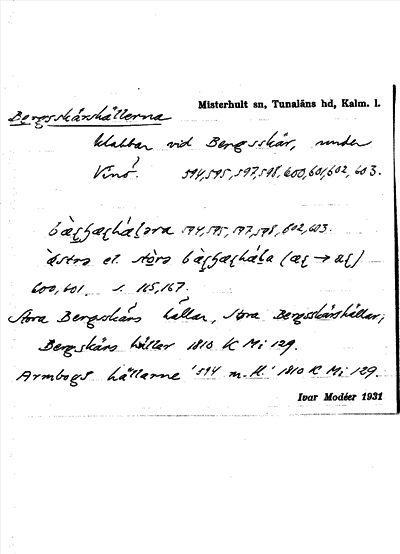 Misterhult sn, Tunaläns hd, Kalm. l.
Bergsskärshällerna
klabbar vid Bergsskär, under
Vinö. 594, 595, 597, 598, 600, 601, 602, 603.
594, 595, 597, 598, 602, 603.
600, 601. s. 165, 167.
Stora Bergskärs hällar, Stora Bergsskärshällar;
Bergskärs hällar 1810 K Mi 129.
Armbogs hällarne '594 m. fl.' 1810 K Mi 129.
Ivar Modéer 1931